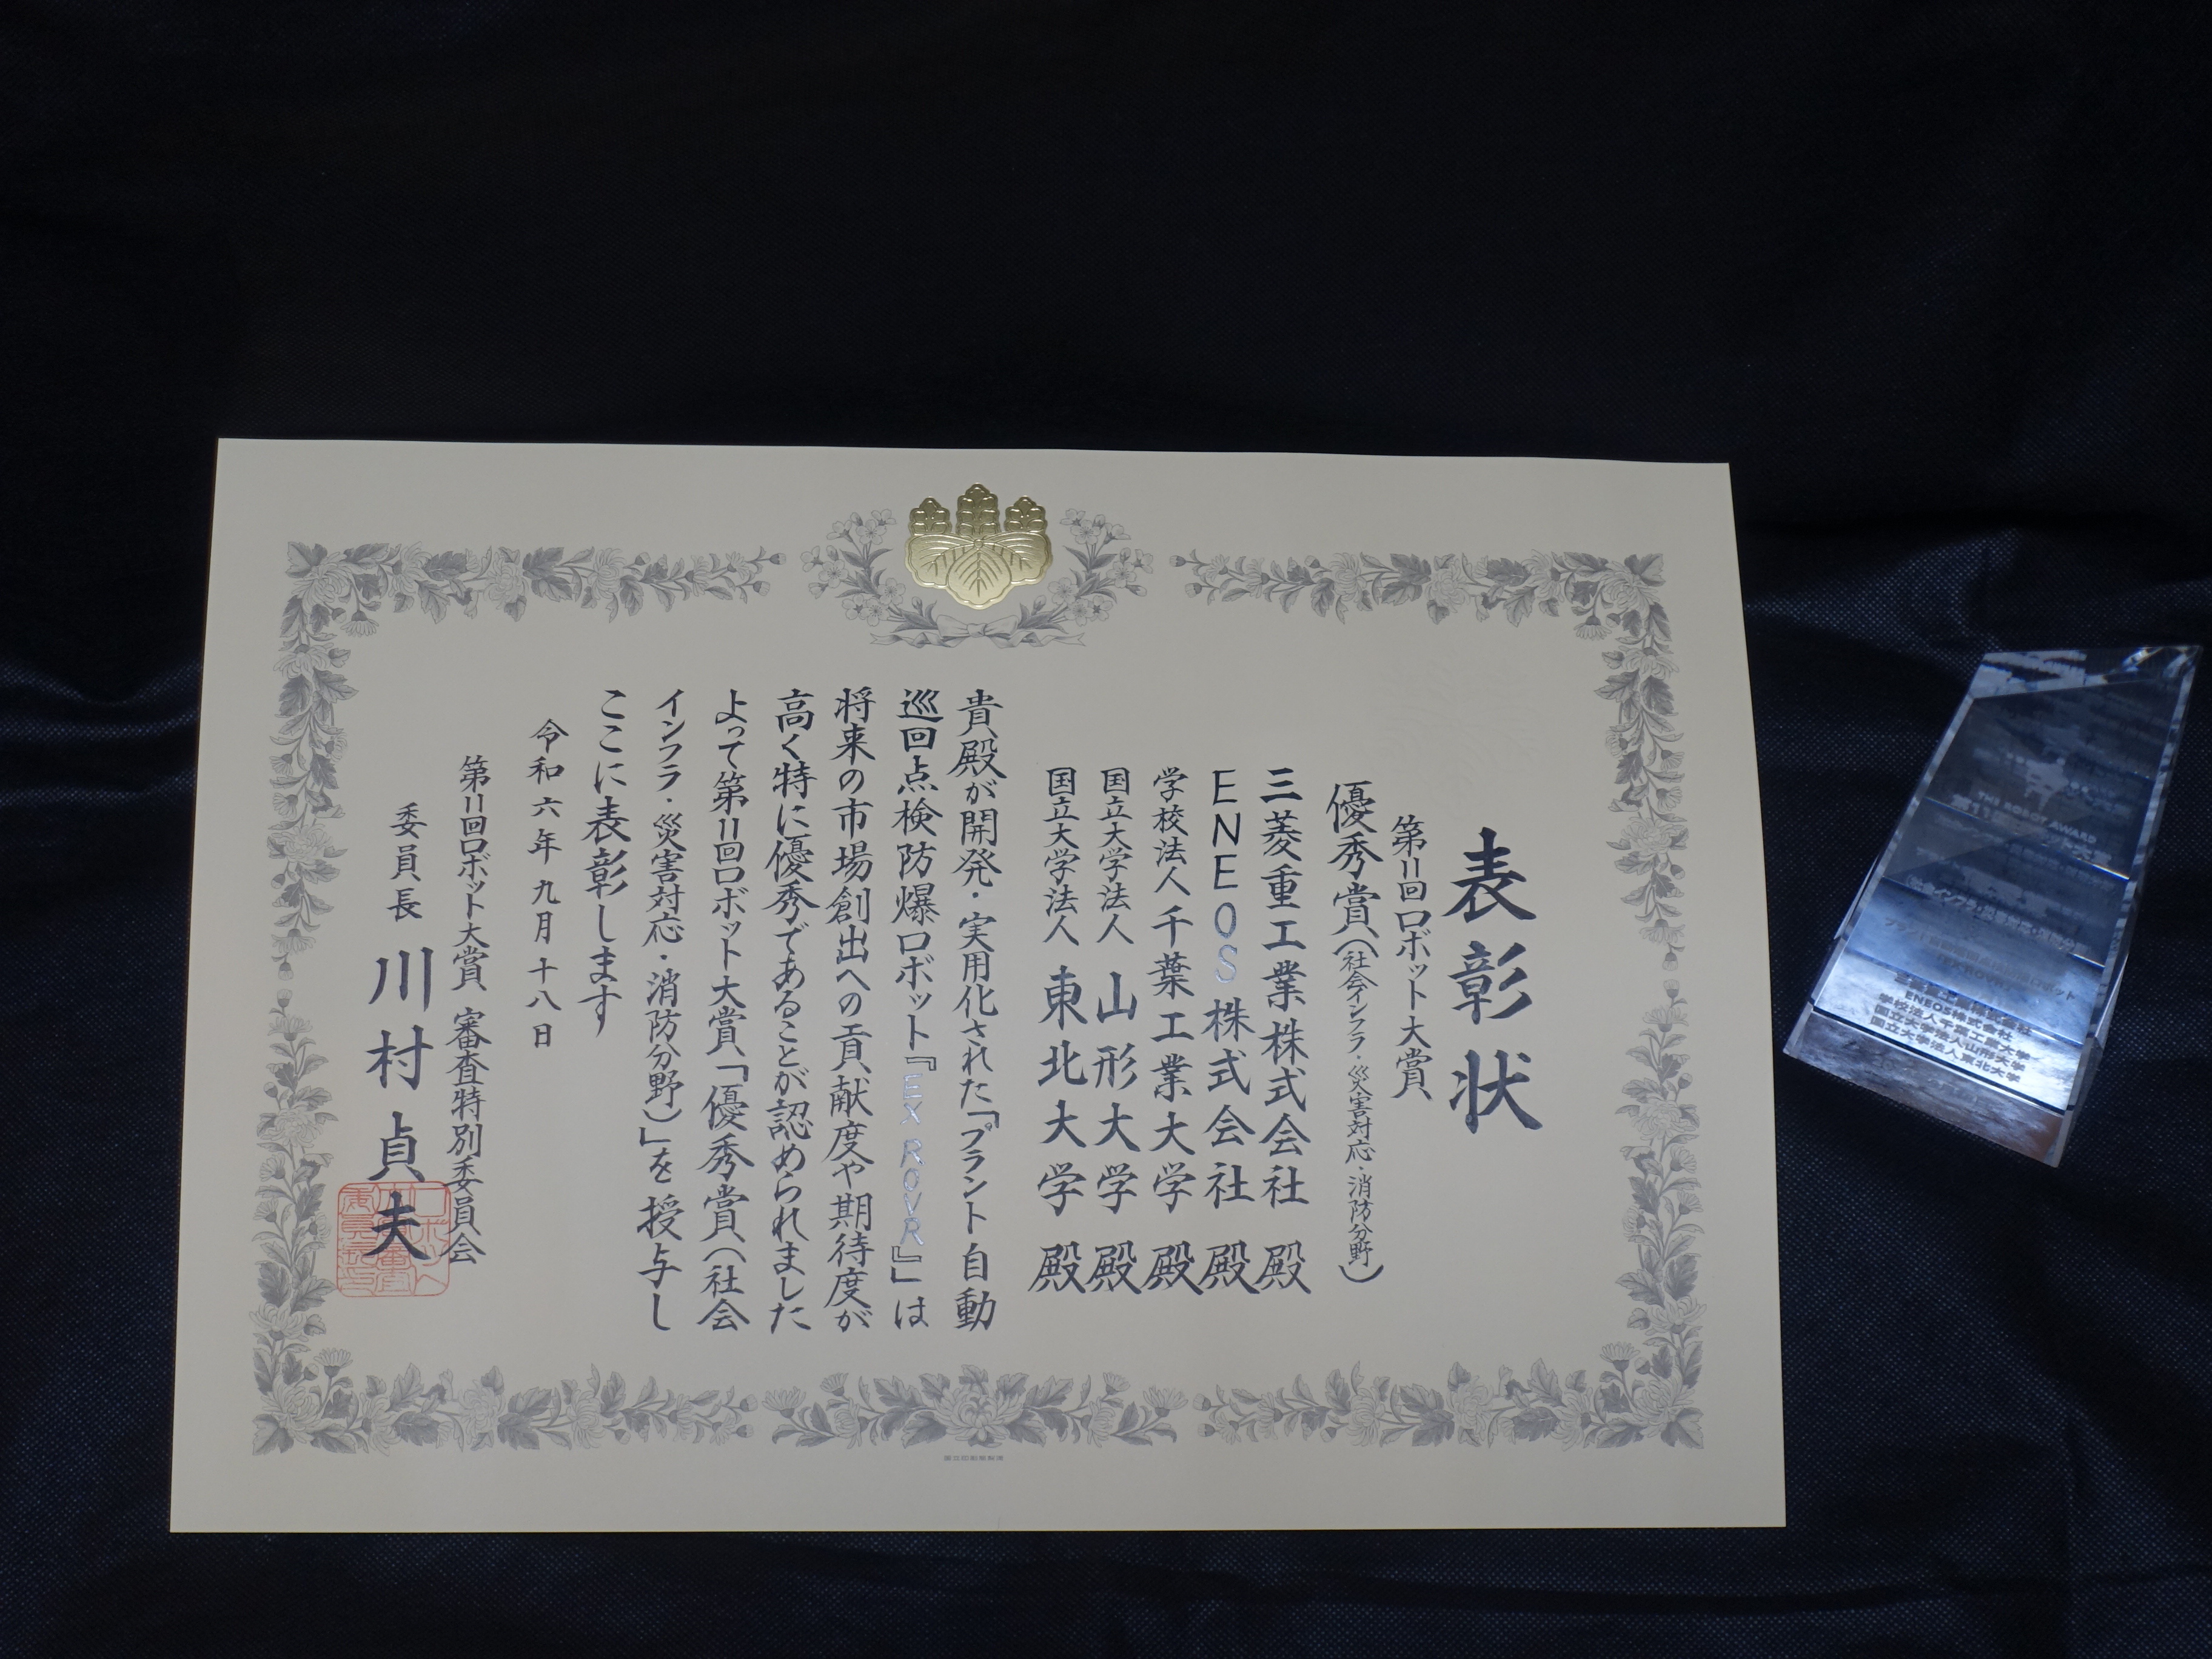 表彰状
第11回ロボット大賞
優秀賞（社会インフラ・災害対応・消防分野）
三菱重工業株式会社 殿
ENEOS株式会社 殿
学校法人千葉工業大学 殿
国立大学法人 山形大学 殿
国立大学法人 東北大学 殿
貴殿が開発・実用化された「プラント自動
巡回点検防爆ロボット『EX ROVR』」は
将来の市場創出への貢献度や期待度が
高く特に優秀であることが認められました
よって第11回ロボット大賞「優秀賞（社会
インフラ・災害対応・消防分野）」を授与し
ここに表彰します
令和六年九月十八日
第11回ロボット大賞 審査特別委員会
委員長 川村貞夫
国立印刷局製造
THE ROBOT AWARD
三菱重工業株式会社
ENEOS株式会社
学校法人千葉工業大学
国立大学法人山形大学
国立大学法人東北大学